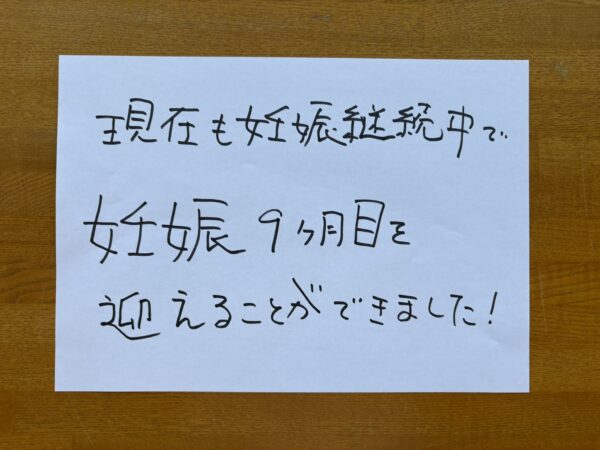 現在も妊娠継続中で
妊娠9ヶ月目を
迎えることができました!